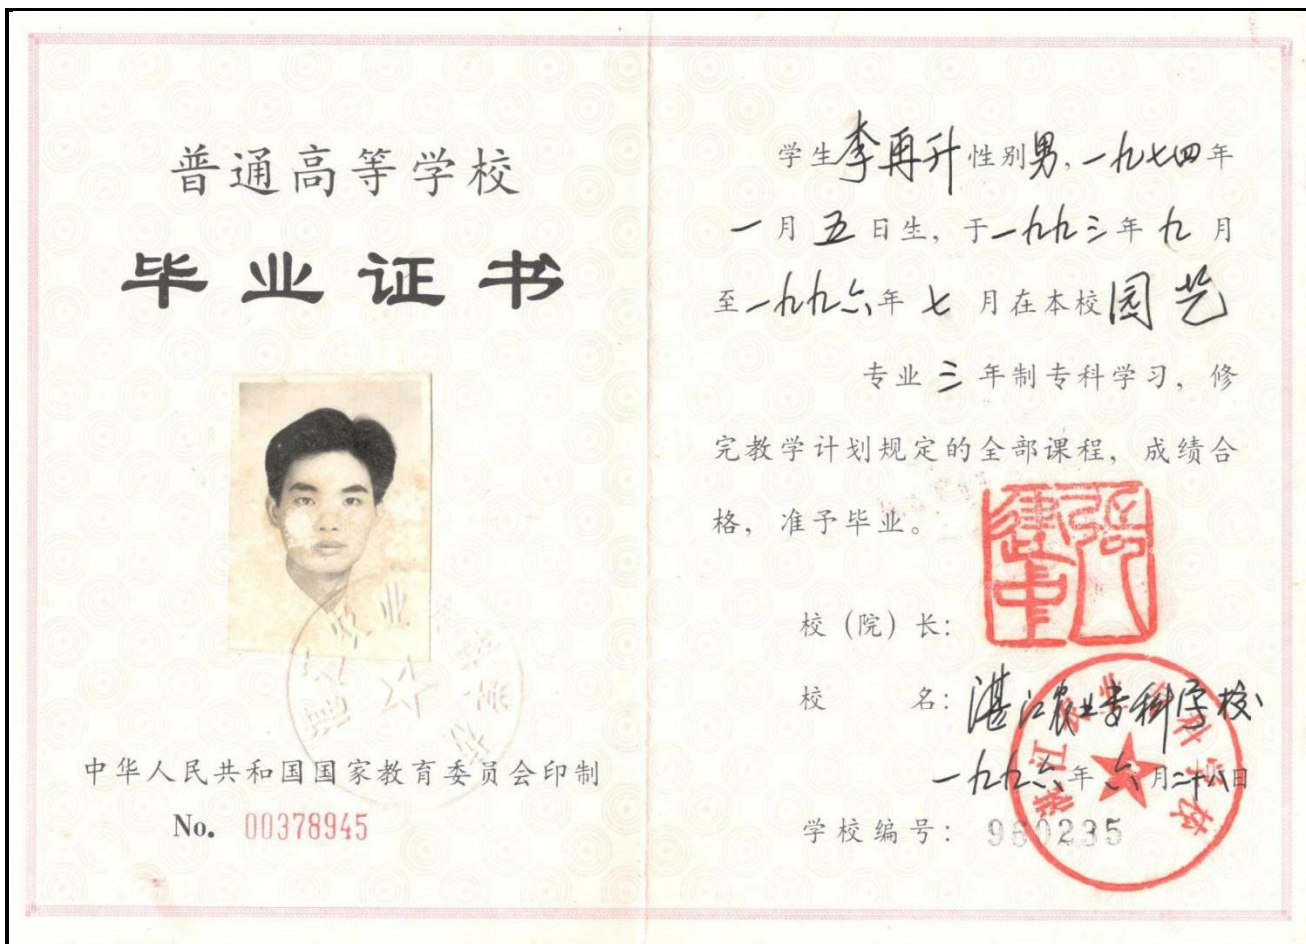 普通高等学校
毕业证书
中华人民共和国国家教育委员会印制
No. 00378945
学生李再升性别男，一九七四年
一月五日生，于一九九三年九月
至一九九六年七月在本校园艺
专业三年制专科学习，修
完教学计划规定的全部课程，成绩合
格，准予毕业。
校（院）长：
张建中
校名：湛江农业专科学校
一九九六年六月二十八日
学校编号：960235
湛江农业专科学校